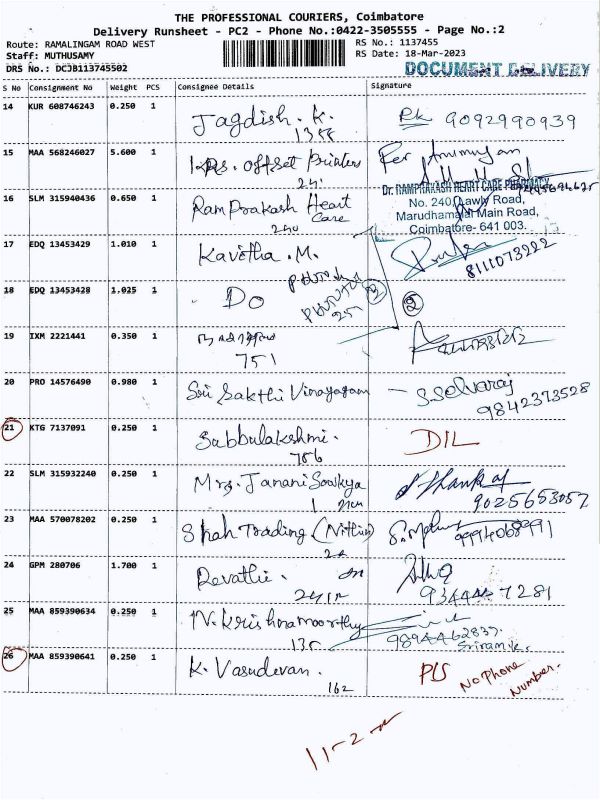 THE PROFESSIONAL COURIERS, Coimbatore
Delivery Runsheet - PC2 - Phone No.:0422-3505555 - Page No.:2
Route: RAMALINGAM ROAD WEST
RS No.: 1137455
Staff: MUTHUSAMY
RS Date: 18-Mar-2023
DRS No.: DCJB113745502
DOCUMENT DELIVERY
S No Consignment No Weight PCS Consignee Details Signature
14 KUR 608746243 0.250 1 Jagdish. K. 9092990939
15 MAA 568246027 5.600 1 offset Printers
241
16 SLM 315940436 0.650 1 Ram Prakash Heart Care
240
Dr. RAMPRAKASH HEART CARE PHARMACY
No. 240, Lawly Road,
Marudhamalai Main Road,
Coimbatore- 641 003.
17 EDQ 13453429 1.010 1 Kavitha. M.
8111073222
18 EDQ 13453428 1.025 1 Do
2 2
19 IXM 2221441 0.350 1
751
20 PRO 14576490 0.980 1 Sri Sakthi Vinayagam - S. Selvaraj
9842373528
21 KTG 7137091 0.250 1 Subbulakshmi. D/L
786
22 SLM 315932240 0.250 1 Mrs. Janani Sowkya
9025653057
23 MAA 570078202 0.250 1 Shah Trading (Nithin)
9994068991
24 GPM 280706 1.700 1 Revathi.
9344447281
25 MAA 859390634 0.250 1 N. Krishnamoorthy
9894462837.
Sriram.k.
26 MAA 859390641 0.250 1 K. Vasudevan. No Phone Number.
162